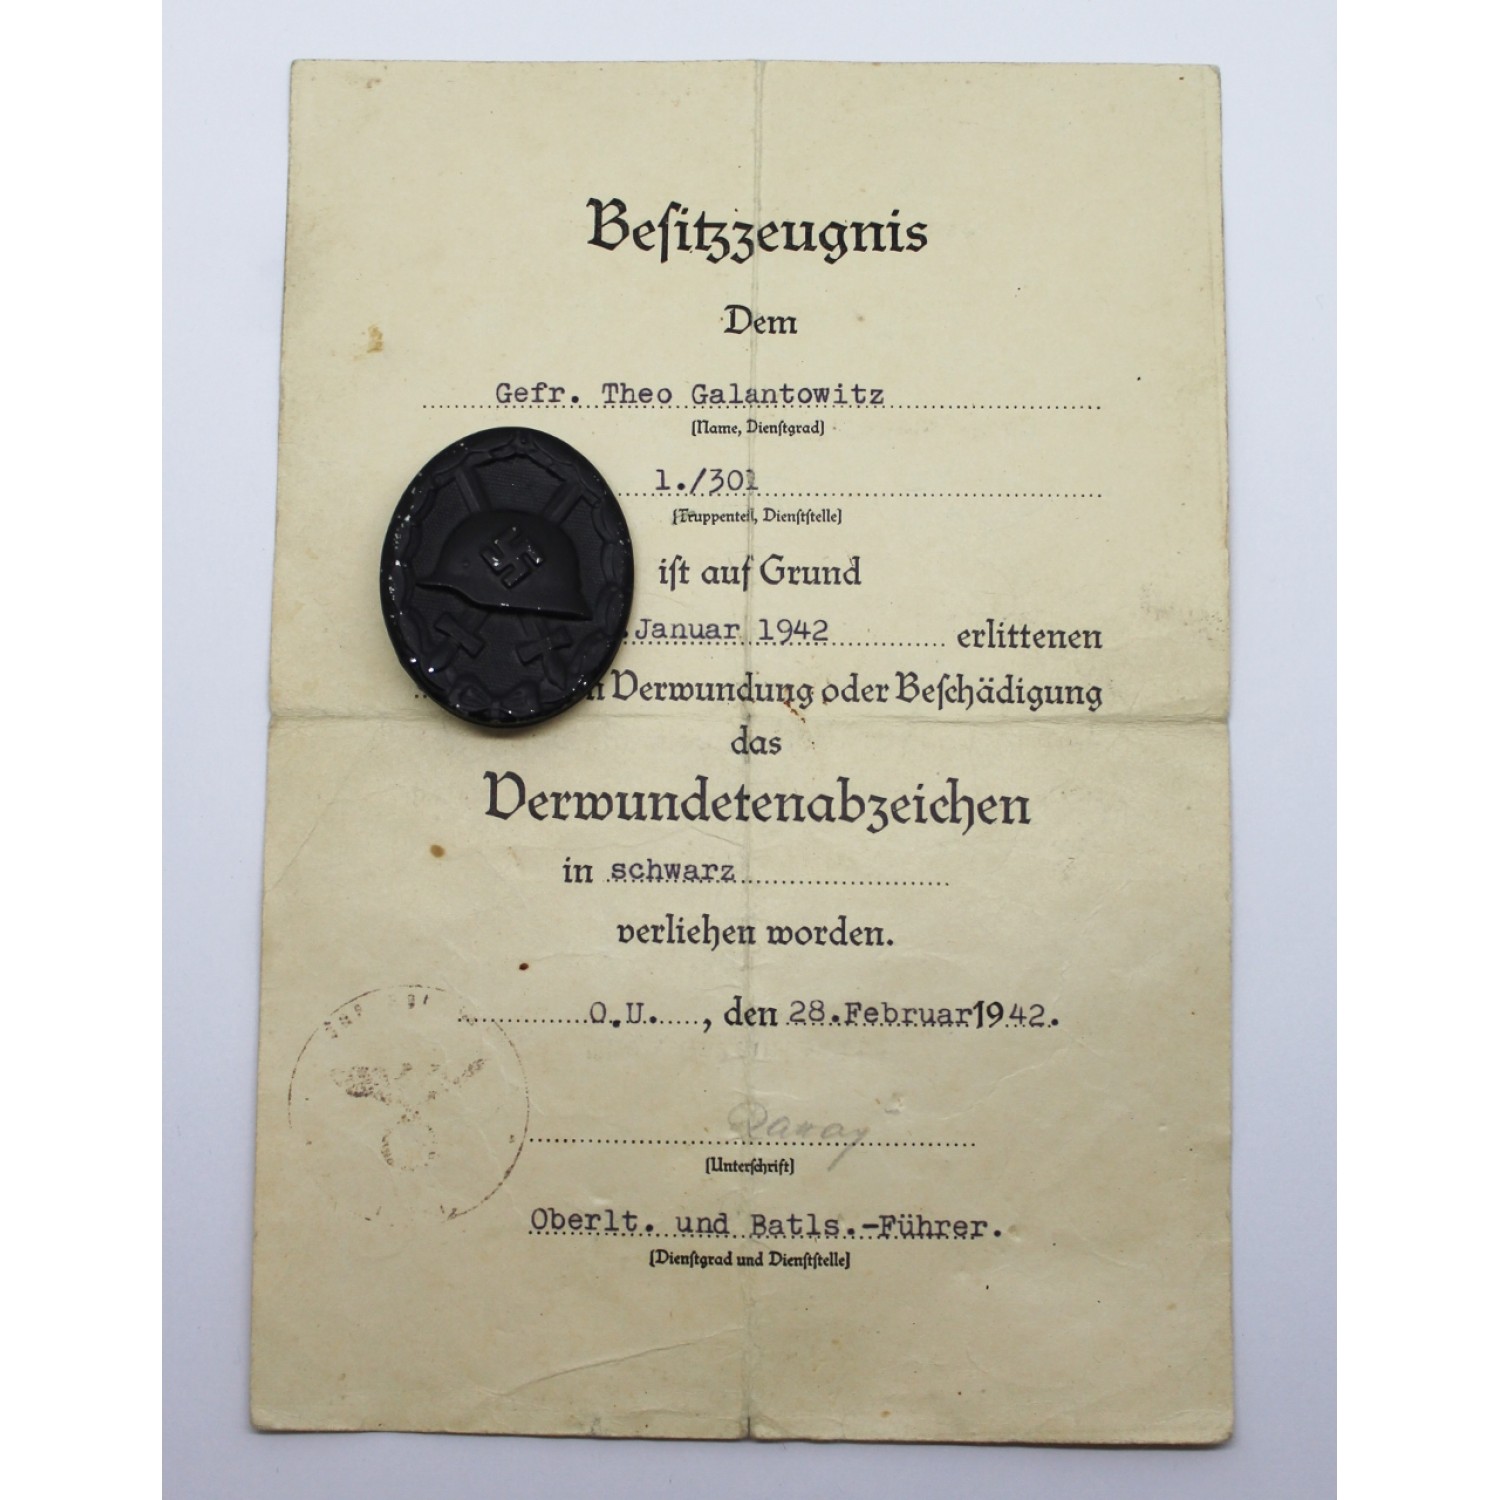 Besitzzeugnis
Dem
Gefr. Theo Galantowitz
(Name, Dienstgrad)
1./301
(Truppenteil, Dienststelle)
ist auf Grund
.Januar 1942 erlittenen
n Verwundung oder Beschädigung
das
Verwundetenabzeichen
in schwarz
verliehen worden.
O.U. , den 28.Februar 1942.
(Unterschrift)
Oberlt. und Batls.-Führer.
(Dienstgrad und Dienststelle)